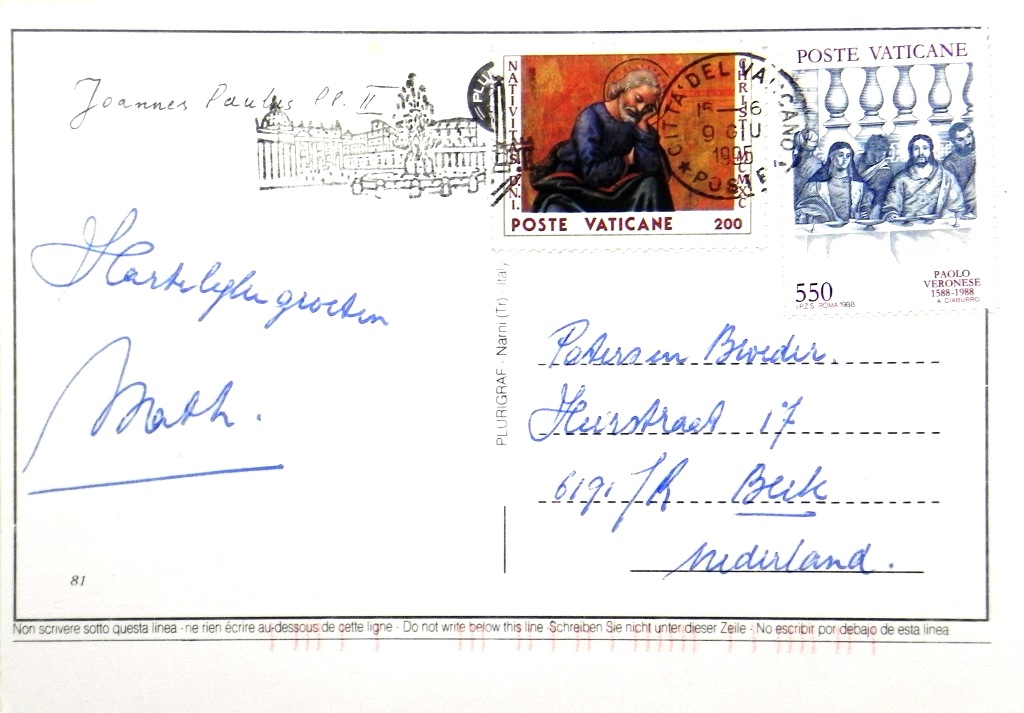 Joannes Paulus PP. II
PLUR
NATIVITAS. D.NI.
CHRISTI MCMXC
POSTE VATICANE 200
CITTÀ DEL VATICANO
15-16
9 GIU
1995
POSTE
POSTE VATICANE
550
I.P.Z.S. ROMA 1988
PAOLO
VERONESE
1588-1988
A. CIABURRO
Hartelijke groeten
Math.
PLURIGRAF - Narni (Tr) - Italy
Paters en Broeder.
Huirstraat 17
6191 JR Beek
Nederland.
81
Non scrivere sotto questa linea - ne rien écrire au-dessous de cette ligne - Do not write below this line - Schreiben Sie nicht unter dieser Zeile - No escribir por debajo de esta linea